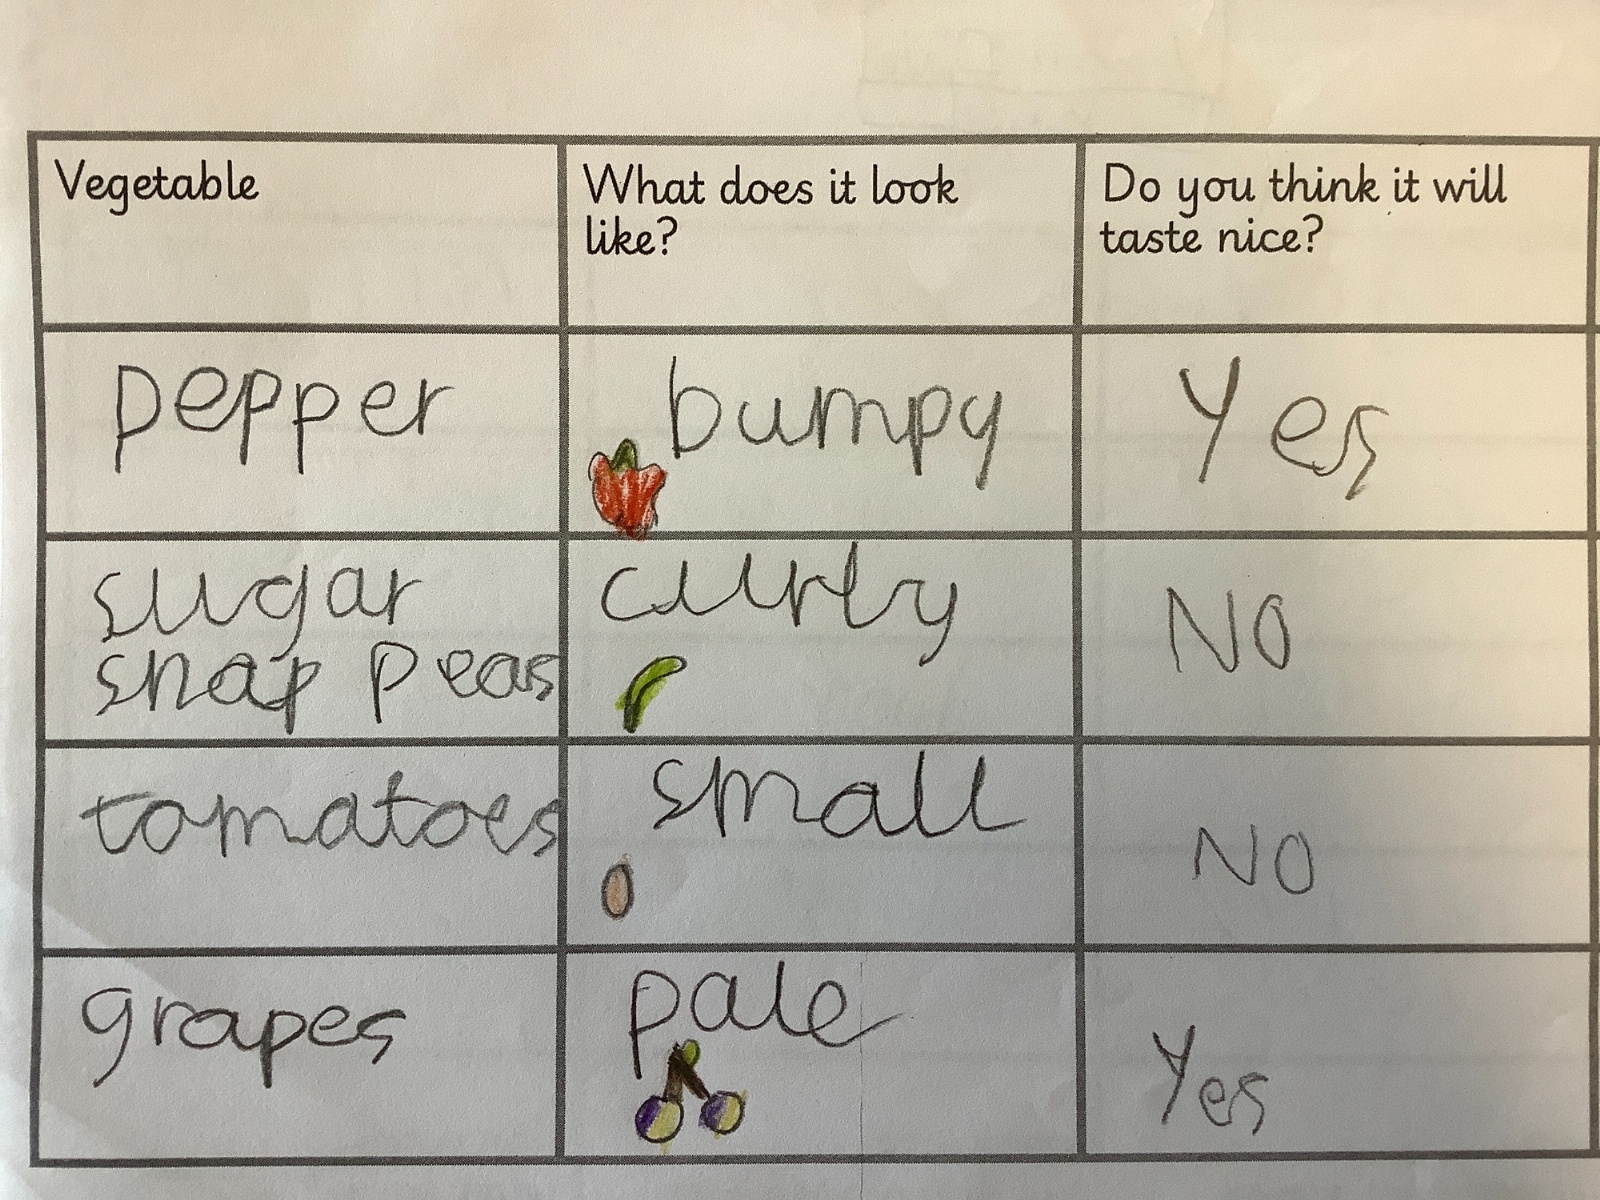 Vegetable
What does it look
like?
Do you think it will
taste nice?
pepper
bumpy
Yes
sugar
snap peas
curly
NO
tomatoes
small
NO
grapes
pale
Yes